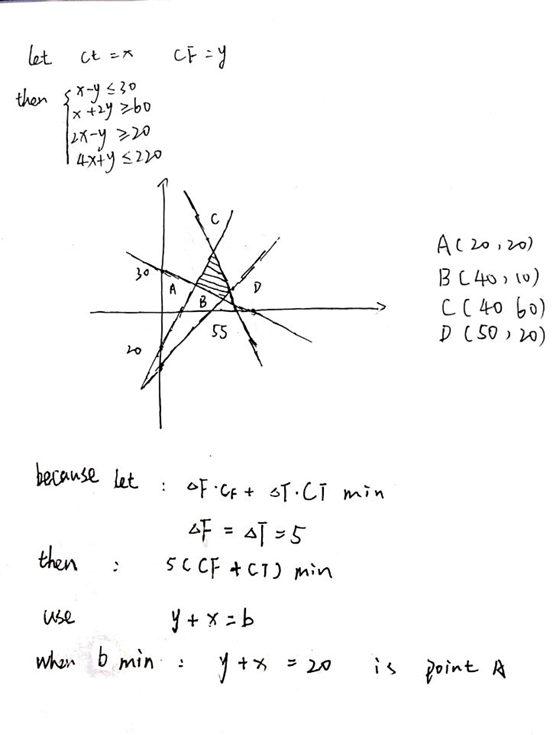 let Ct = x CF = y
then { x-y ≤ 30
x+2y ≥ 60
2x-y ≥ 20
4x+y ≤ 220
C
30
A
D
B
55
20
A(20,20)
B(40,10)
C(40 60)
D(50,20)
because let : △F·CF + △T·CT min
△F = △T = 5
then : 5(CF + CT) min
use y + x = b
when b min : y + x = 20 is point A